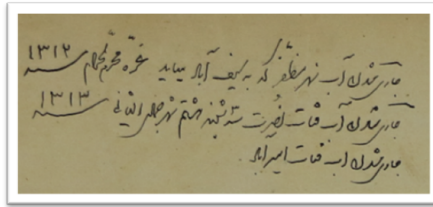 جاری شدن آب نهر مظفری که به یوسف آباد میاید غرّه محرّم الحرام سنه ۱۳۱۲
جاری شدن آب قنات نصرت سه شنبه هشتم شهر جمادی الثانی سنه ۱۳۱۳
جاری شدن آب قنات امیرآباد